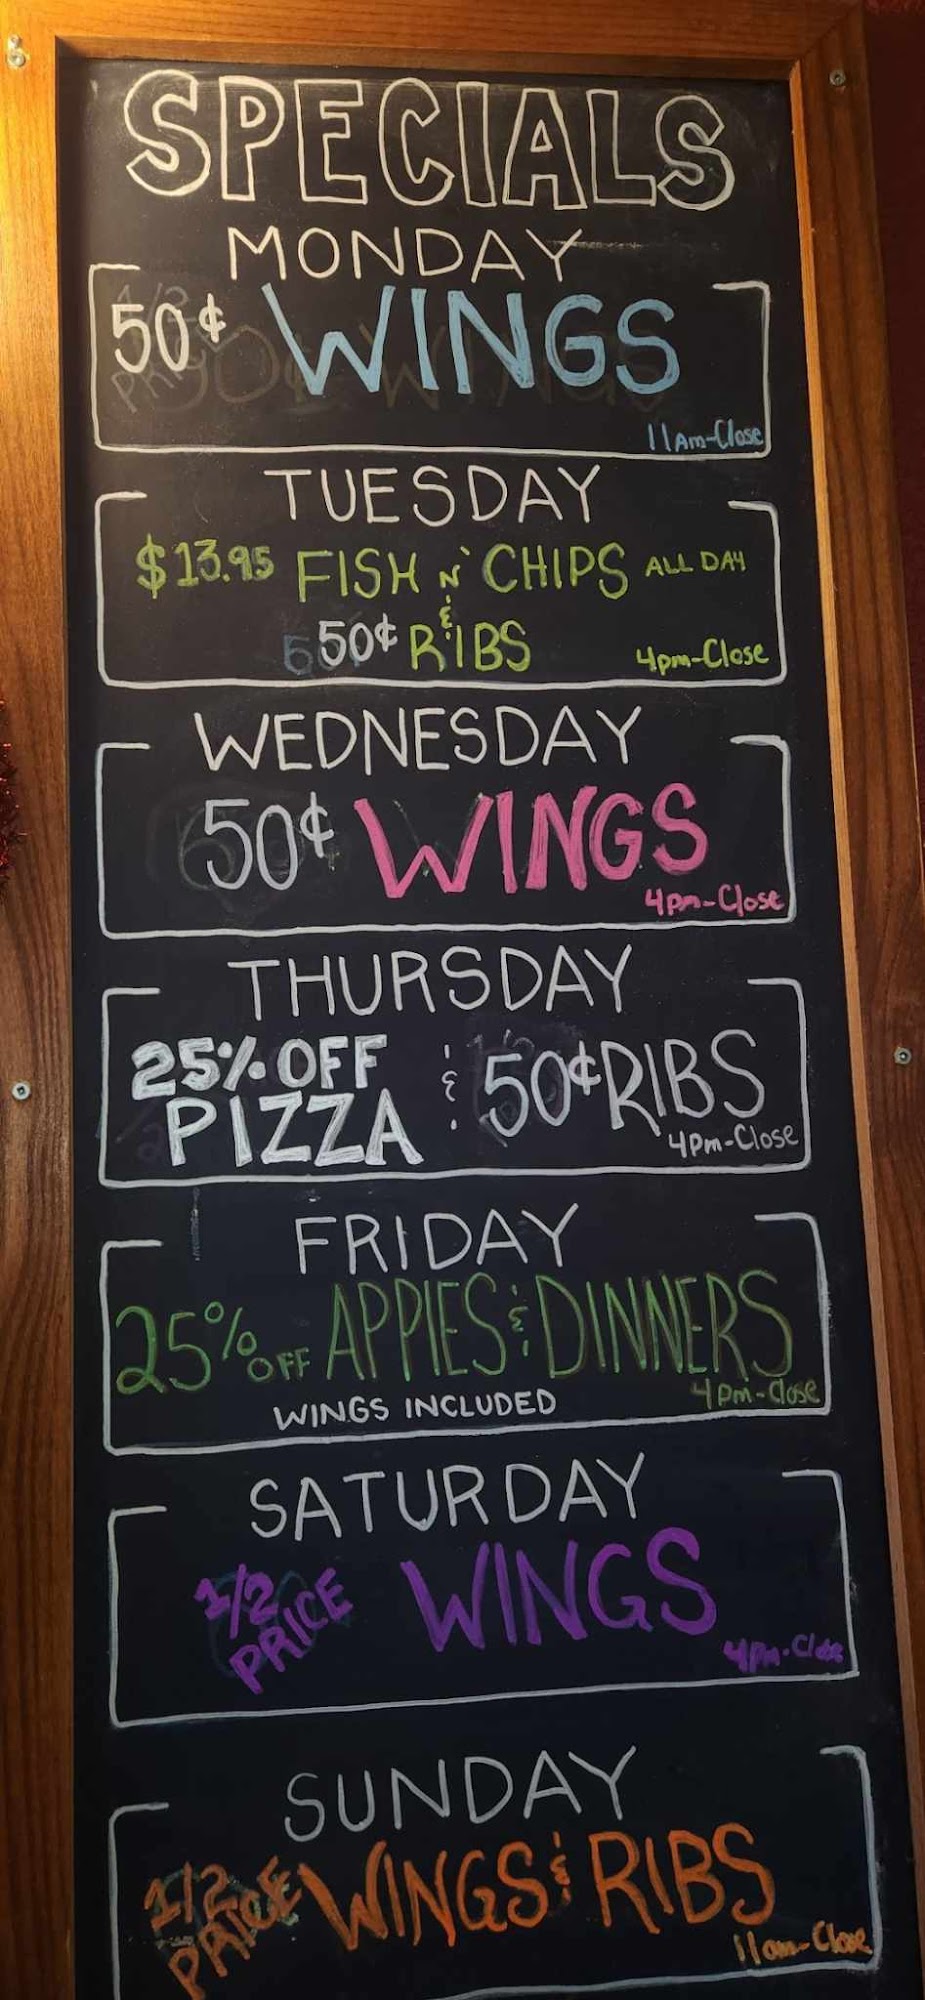 SPECIALS
MONDAY
50¢ WINGS
11Am-Close
TUESDAY
$13.95 FISH N' CHIPS ALL DAY
&
50¢ RIBS 4pm-Close
WEDNESDAY
50¢ WINGS
4pm-Close
THURSDAY
25% OFF PIZZA & 50¢ RIBS
4pm-Close
FRIDAY
25% OFF APPIES & DINNERS
WINGS INCLUDED 4pm-Close
SATURDAY
1/2 PRICE WINGS
4pm-Close
SUNDAY
1/2 PRICE WINGS & RIBS
11am-Close